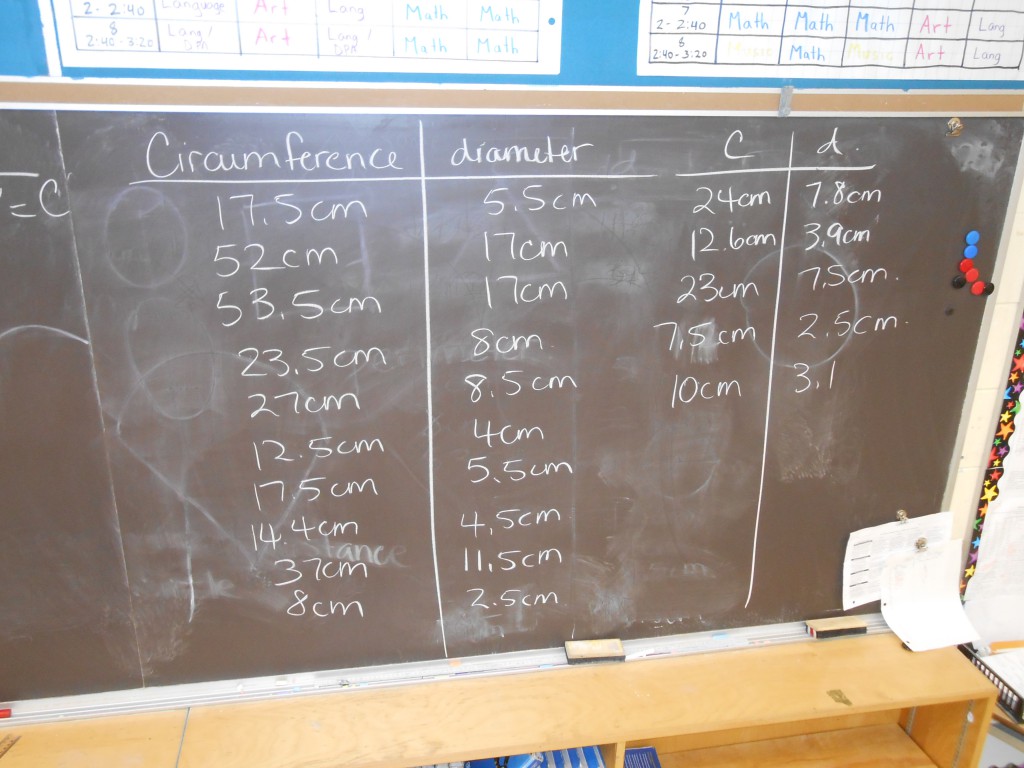 2-2:40 Language Art Lang Math Math
8 2:40-3:20 Lang/ DPA Art Lang/ DPA Math Math
7 2-2:40 Math Math Math Art Lang
8 2:40-3:20 Music Math Music Art Lang
=C
Circumference diameter
17.5cm 5.5cm
52cm 17cm
53.5cm 17cm
23.5cm 8cm
27cm 8.5cm
12.5cm 4cm
17.5cm 5.5cm
14.4cm 4.5cm
37cm 11.5cm
8cm 2.5cm
C d.
24cm 7.8cm
12.6cm 3.9cm
23cm 7.5cm.
7.5cm 2.5cm.
10cm 3.1
stance